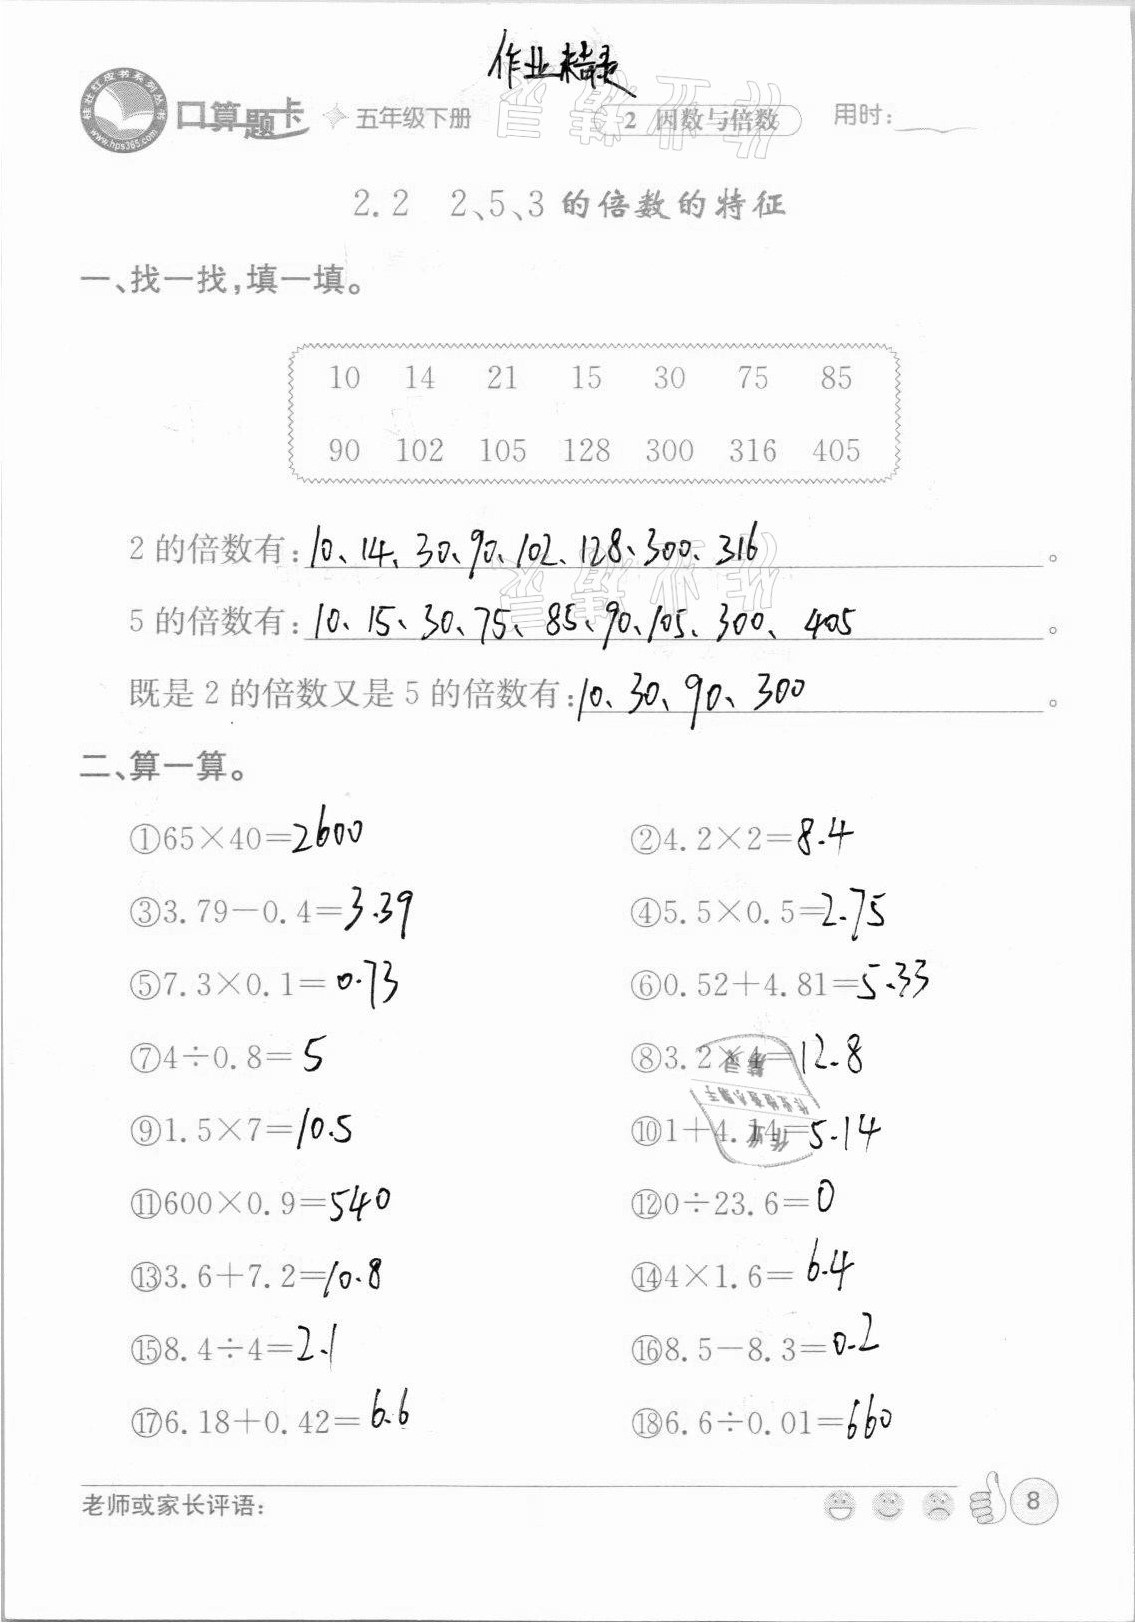 作业精灵
桂壮红皮书系列丛书
www.hps365.com
口算题卡 五年级下册 2 因数与倍数 用时:
2.2 2、5、3的倍数的特征
一、找一找,填一填。
10 14 21 15 30 75 85
90 102 105 128 300 316 405
2的倍数有:10、14、30、90、102、128、300、316。
5的倍数有:10、15、30、75、85、90、105、300、405。
既是2的倍数又是5的倍数有:10、30、90、300。
二、算一算。
①65×40=2600 ②4.2×2=8.4
③3.79-0.4=3.39 ④5.5×0.5=2.75
⑤7.3×0.1=0.73 ⑥0.52+4.81=5.33
⑦4÷0.8=5 ⑧3.2×4=12.8
⑨1.5×7=10.5 ⑩1+4.14=5.14
⑪600×0.9=540 ⑫0÷23.6=0
⑬3.6+7.2=10.8 ⑭4×1.6=6.4
⑮8.4÷4=2.1 ⑯8.5-8.3=0.2
⑰6.18+0.42=6.6 ⑱6.6÷0.01=660
老师或家长评语: 8